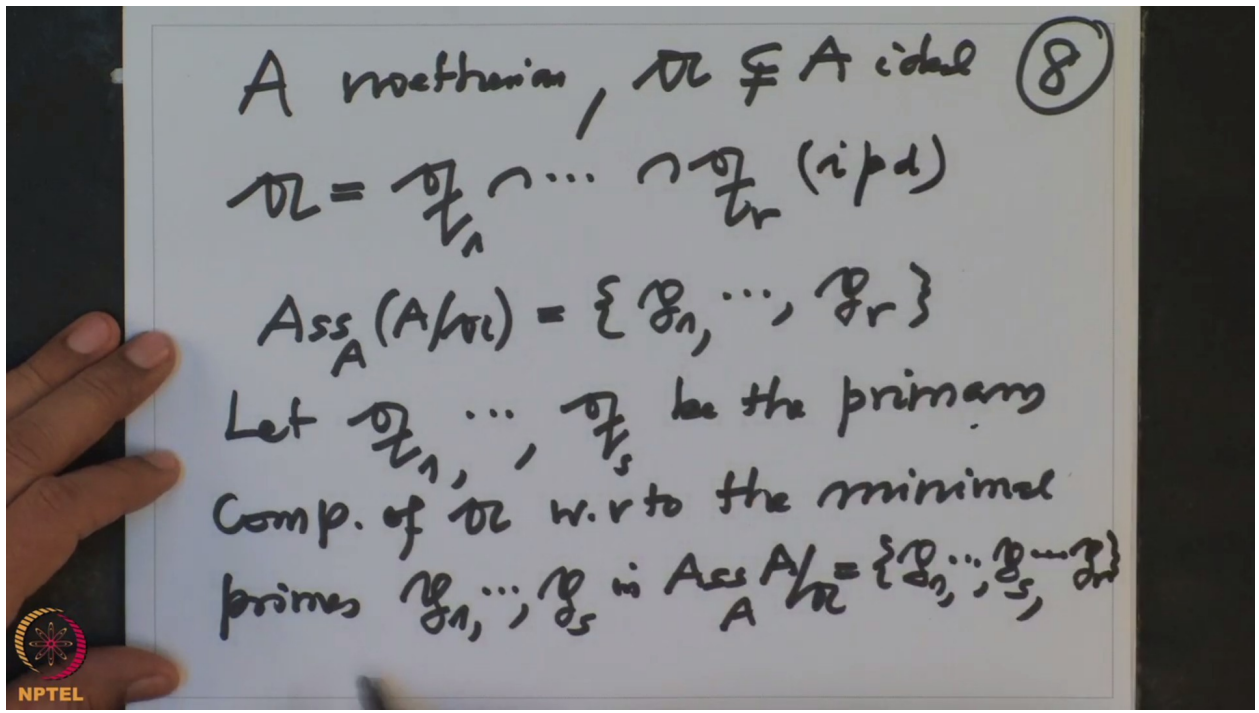 A noetherian, 𝔞 ⊊ A ideal ⑧
𝔞 = 𝔮₁ ∩ ··· ∩ 𝔮ᵣ (ipd)
Ass_A (A/𝔞) = {𝔭₁, ···, 𝔭ᵣ}
Let 𝔮₁, ···, 𝔮ₛ be the primary
Comp. of 𝔞 w.r to the minimal
primes 𝔭₁, ···, 𝔭ₛ in Ass_A A/𝔞 = {𝔭₁, ···, 𝔭ₛ, ··· 𝔭ᵣ}
NPTEL